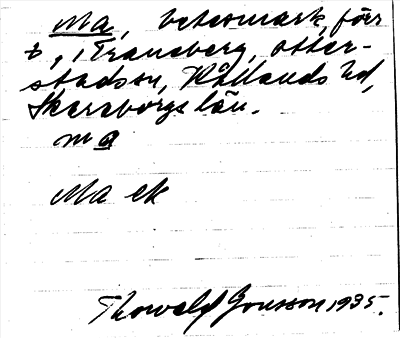 Ma, betesmark, förr
t, i Traneberg, Otter-
stads sn, Kållands hd,
Skaraborgs län.
ma
Ma ek
Thorvald Jonsson 1935.